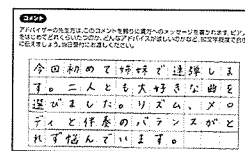 コメント
アドバイザーの先生方は、このコメントを頼りに貴方へのメッセージを書かれます。ピアノ
をはじめてどれくらいたつのか、どんなアドバイスが欲しいのかなど、
に伝えましょう。当日受付にお渡しください。
今回初めて姉妹で連弾しま
す。二人とも大好きな曲を
選びました。リズム、メロ
ディと伴奏のバランスがと
れず悩んでいます。